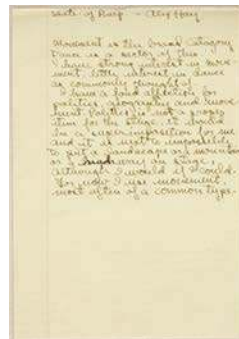 State of Being - Alex Hay
Movement is the broad category
Dance is a sector of this
I have strong interest in move-
ment, little interest in dance
as commonly thought of.
I have a fond affection for
politics, geography and move-
ment. Politics is not a proper
item for the stage. It should
be a superimposition for me
and it is next to impossibly
to put a landscape or a mountain
or a highway on stage,
although I would if I could.
For now I use movement,
most often of a common type.